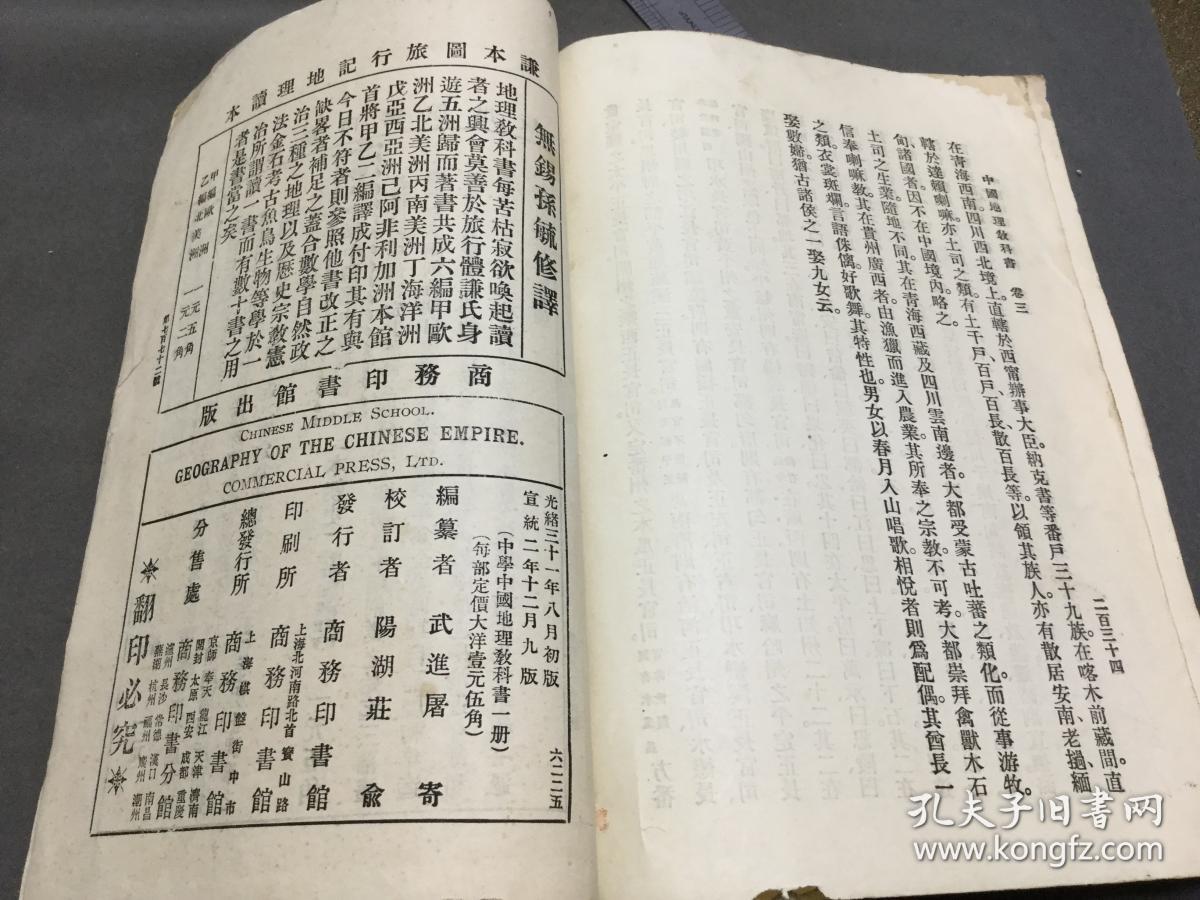 中國地理教科書 卷三 二百三十四
在青海西南四川西北境上。直轄於西甯辦事大臣。納克書等番戶三十九族。在喀木前藏間。直
轄於達賴喇嘛。亦土司之類。有土千戶、百戶、百長、散百長等。以領其族人。亦有散居安南、老撾、緬
甸諸國者。因不在中國境內。略之。
土司之生業。隨地不同。其在青海西藏及四川雲南邊者。大都受蒙古吐蕃之類化。而從事游牧。
信奉喇嘛教。其在貴州廣西者。由漁獵而進入農業。其所奉之宗教。不可考。大都崇拜禽獸木石
之類。衣裳斑斕。言語侏𠌯。好歌舞。其特性也。男女以春月入山唱歌。相悅者則爲配偶。其酋長一
娶數婦。猶古諸侯之一娶九女云。
謙本圖旅行記地理讀本
無錫孫毓修譯
地理教科書每苦枯寂欲喚起讀
者之興會莫善於旅行體謙氏身
遊五洲歸而著書共成六編甲歐
洲乙北美洲丙南美洲丁海洋洲
戊亞西亞洲己阿非利加洲本館
首將甲乙二編譯成付印其有與
今日不符者則參照他書改正之
缺畧者補足之蓋合數學自然政
治三種之地理以及歷史宗教憲
法金石考古魚鳥生物等學於一
治所謂讀一書而有數十書之用
者是書當之矣
甲編歐洲 一元五角
乙編北美洲 一元二角
第七百七十二號
商務印書館出版
CHINESE MIDDLE SCHOOL.
GEOGRAPHY OF THE CHINESE EMPIRE.
COMMERCIAL PRESS, LTD.
光緒三十一年八月初版
宣統二年十二月九版
六二二五
(中學中國地理教科書一册)
(每部定價大洋壹元伍角)
編纂者 武進屠寄
校訂者 陽湖莊俞
發行者 商務印書館
印刷所 上海北河南路北首寶山路 商務印書館
總發行所 上海棋盤街中市 商務印書館
分售處 京師 奉天 龍江 天津 濟南
開封 太原 西安 成都 重慶
商務印書分館
瀘州 長沙 常德 漢口 南昌
蕪湖 杭州 福州 廣州 潮州
翻印必究
孔夫子旧书网
www.kongfz.com